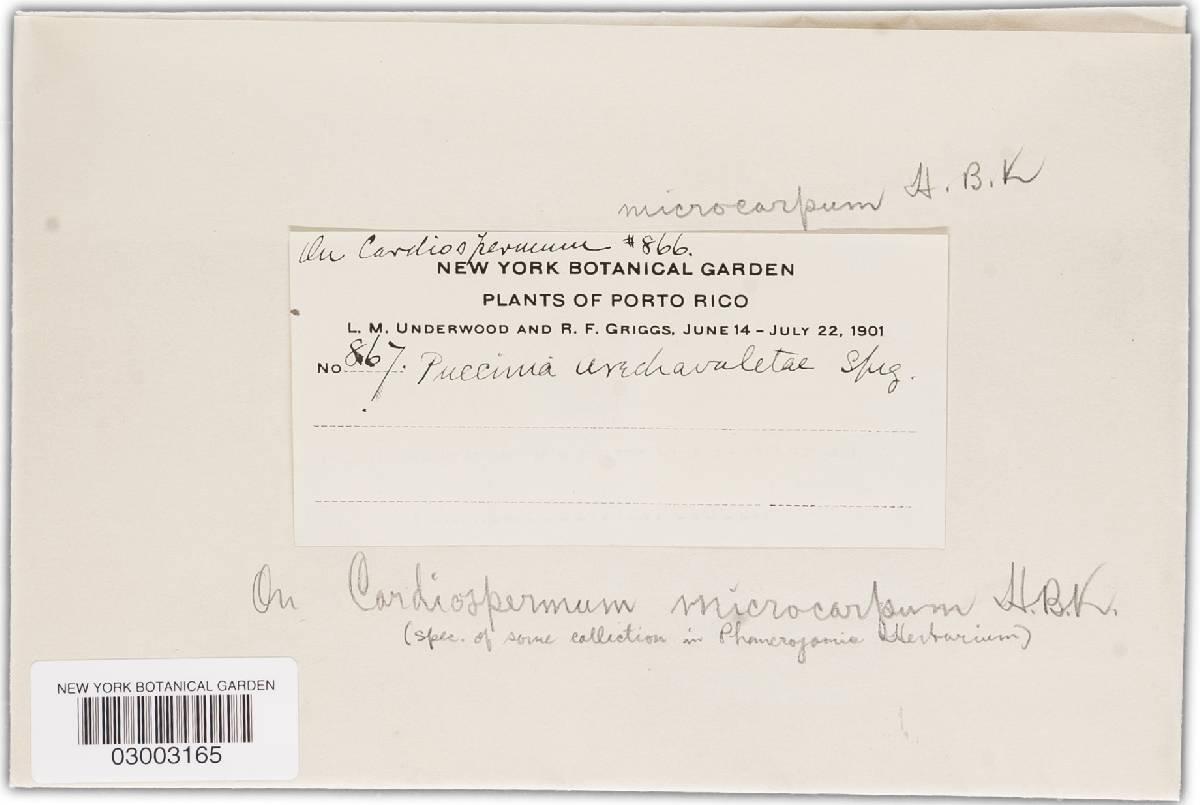 microcarpum H.B.K
On Cardiospermum #866.
NEW YORK BOTANICAL GARDEN
PLANTS OF PORTO RICO
L. M. UNDERWOOD AND R. F. GRIGGS, JUNE 14 – JULY 22, 1901
No. 867. Puccinia arechavaletae Speg.
On Cardiospermum microcarpum H.B.K.
(spec. of same collection in Phanerogamic Herbarium)
NEW YORK BOTANICAL GARDEN
03003165